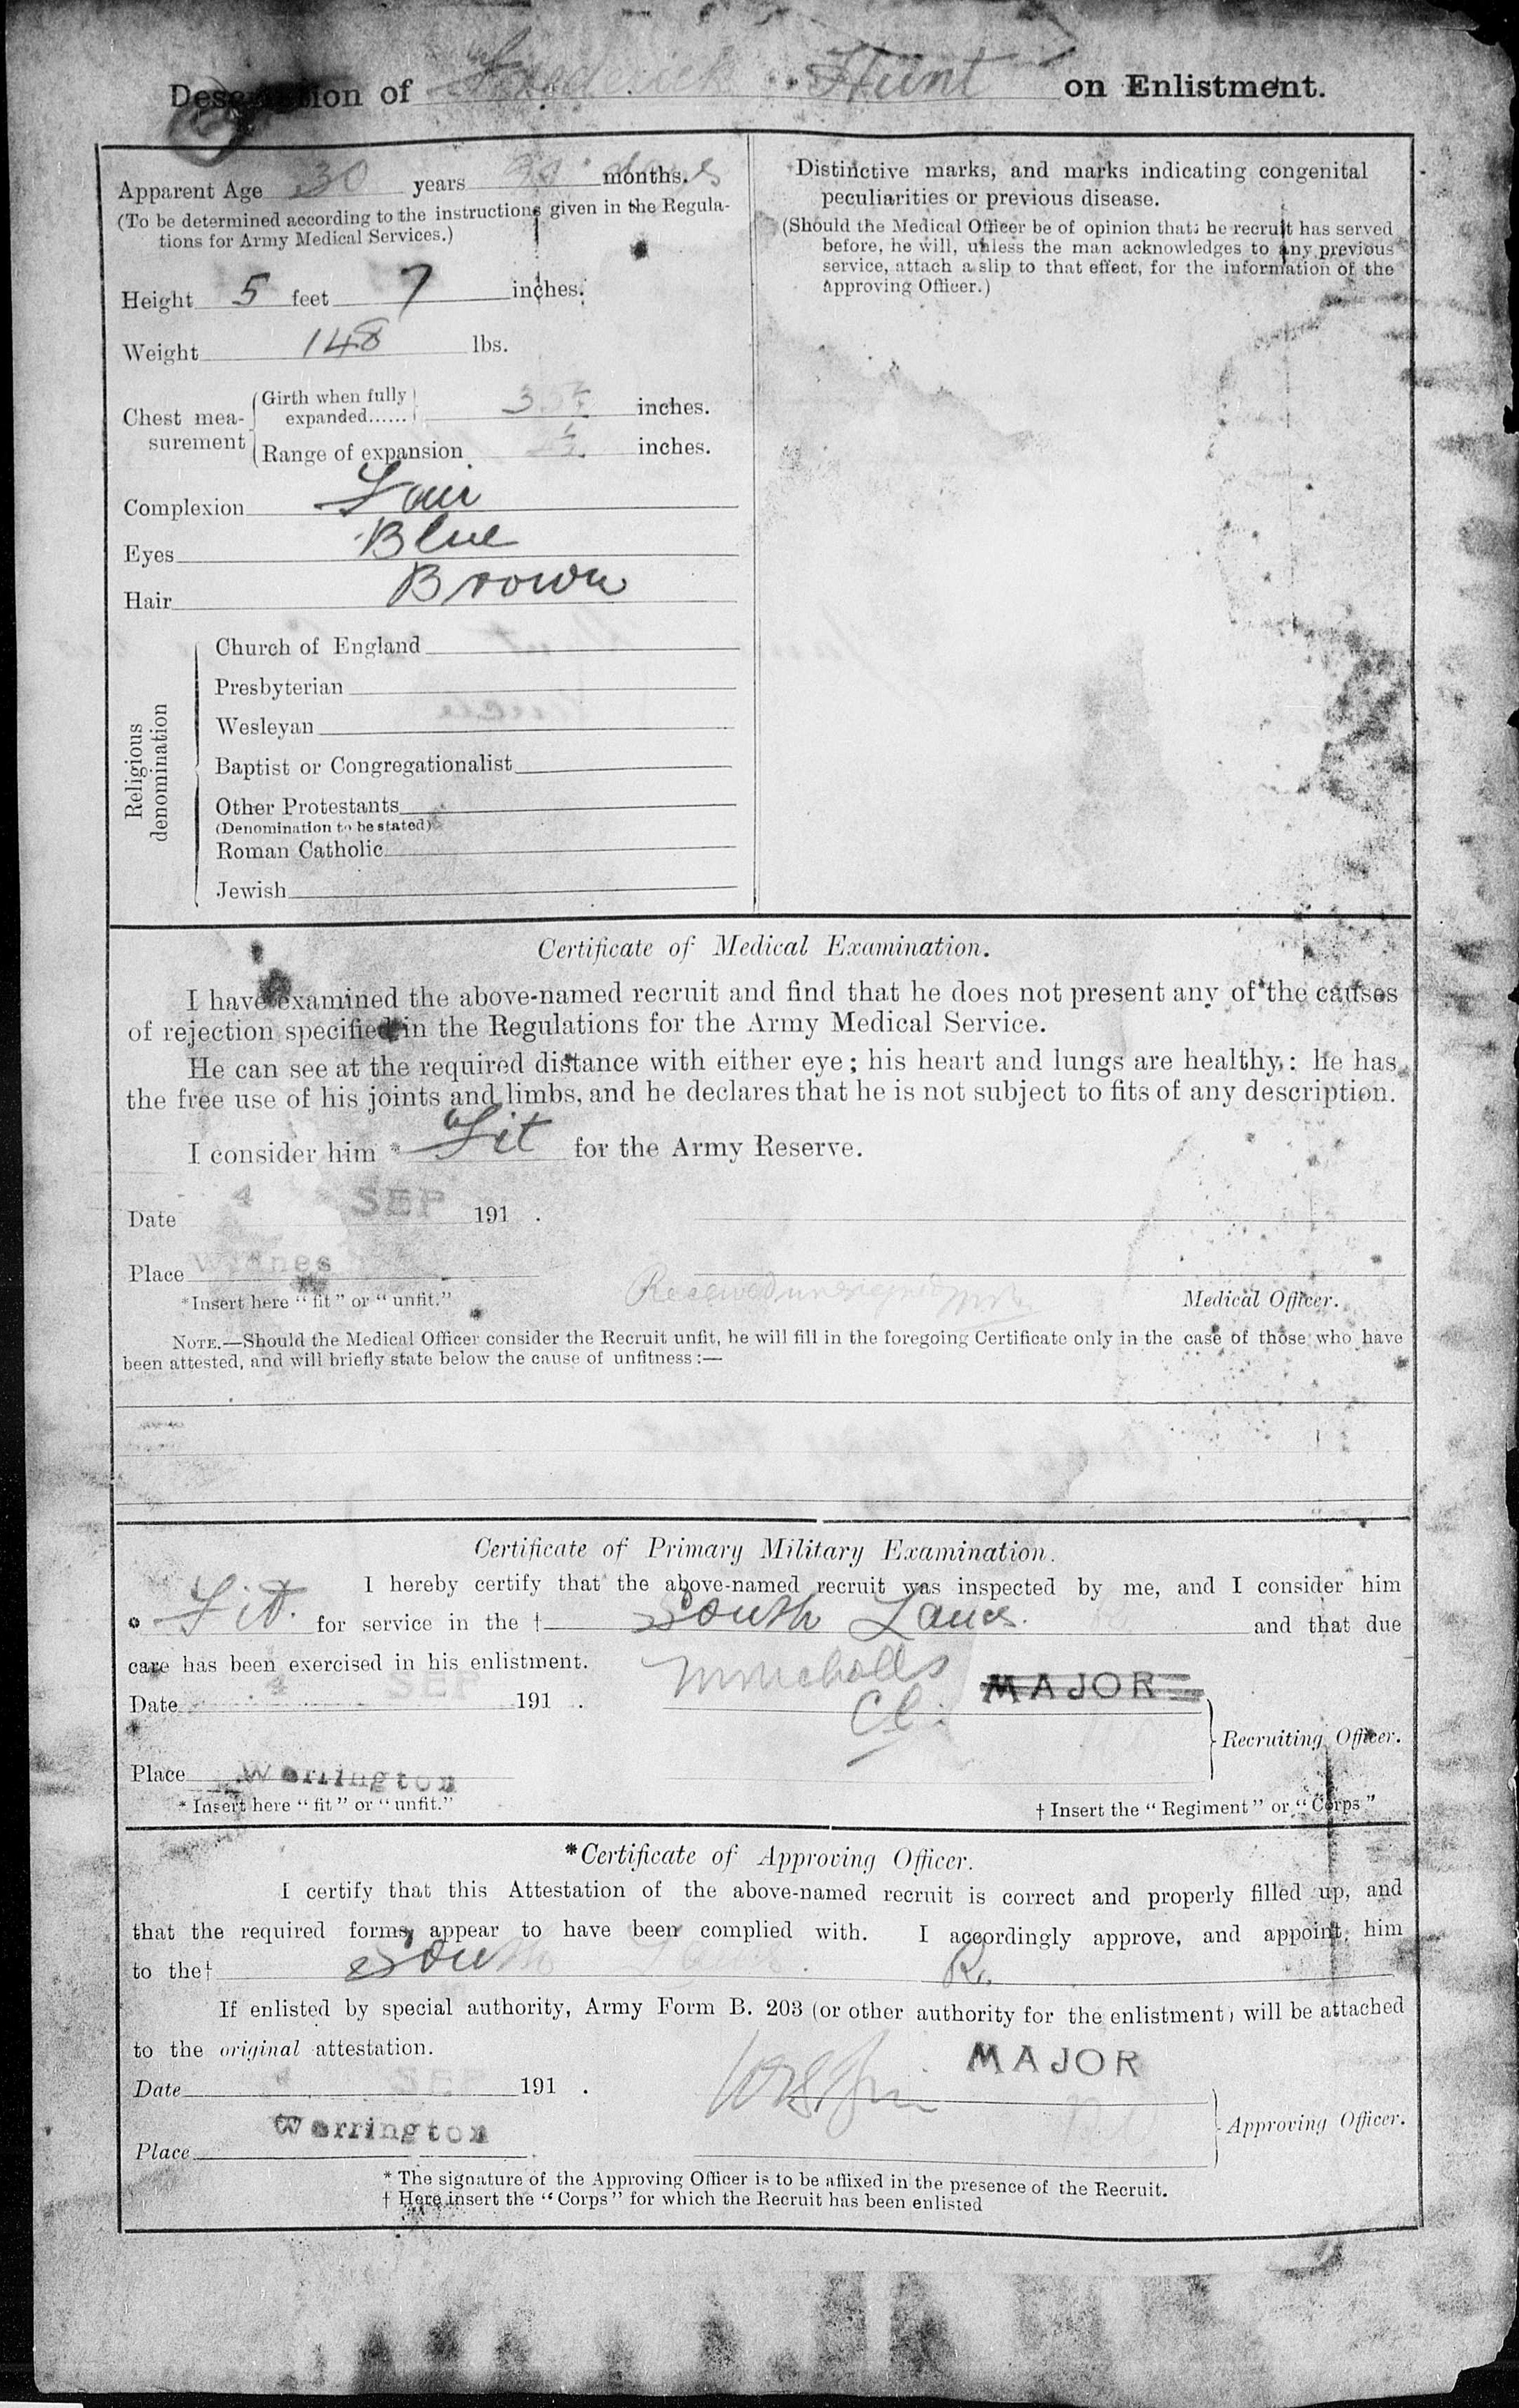 Description of Frederick Hunt on Enlistment.
Apparent Age 30 years months. days
(To be determined according to the instructions given in the Regula-
tions for Army Medical Services.)
Height 5 feet 7 inches.
Weight 148 lbs.
Chest mea-
surement
Girth when fully
expanded...... inches.
Range of expansion inches.
Complexion Fair
Eyes Blue
Hair Brown
Religious
denomination
Church of England
Presbyterian
Wesleyan
Baptist or Congregationalist
Other Protestants
(Denomination to be stated)
Roman Catholic
Jewish
Distinctive marks, and marks indicating congenital
peculiarities or previous disease.
(Should the Medical Officer be of opinion that he recruit has served
before, he will, unless the man acknowledges to any previous
service, attach a slip to that effect, for the information of the
Approving Officer.)
Certificate of Medical Examination.
I have examined the above-named recruit and find that he does not present any of the causes
of rejection specified in the Regulations for the Army Medical Service.
He can see at the required distance with either eye; his heart and lungs are healthy; he has
the free use of his joints and limbs, and he declares that he is not subject to fits of any description.
I consider him * Fit for the Army Reserve.
Date 4 SEP 191 .
Place Widnes
*Insert here "fit" or "unfit."
Received unsigned
Medical Officer.
NOTE.—Should the Medical Officer consider the Recruit unfit, he will fill in the foregoing Certificate only in the case of those who have
been attested, and will briefly state below the cause of unfitness:—
Certificate of Primary Military Examination.
I hereby certify that the above-named recruit was inspected by me, and I consider him
* Fit. for service in the † South Lancs. and that due
care has been exercised in his enlistment.
Date 4 SEP 191 .
MAJOR
Recruiting Officer.
Place Warrington
* Insert here "fit" or "unfit."
† Insert the "Regiment" or "Corps"
*Certificate of Approving Officer.
I certify that this Attestation of the above-named recruit is correct and properly filled up, and
that the required forms appear to have been complied with. I accordingly approve, and appoint him
to the† South Lancs. R.
If enlisted by special authority, Army Form B. 203 (or other authority for the enlistment) will be attached
to the original attestation.
MAJOR
Date 4 SEP 191 .
Approving Officer.
Warrington
Place
* The signature of the Approving Officer is to be affixed in the presence of the Recruit.
† Here insert the "Corps" for which the Recruit has been enlisted